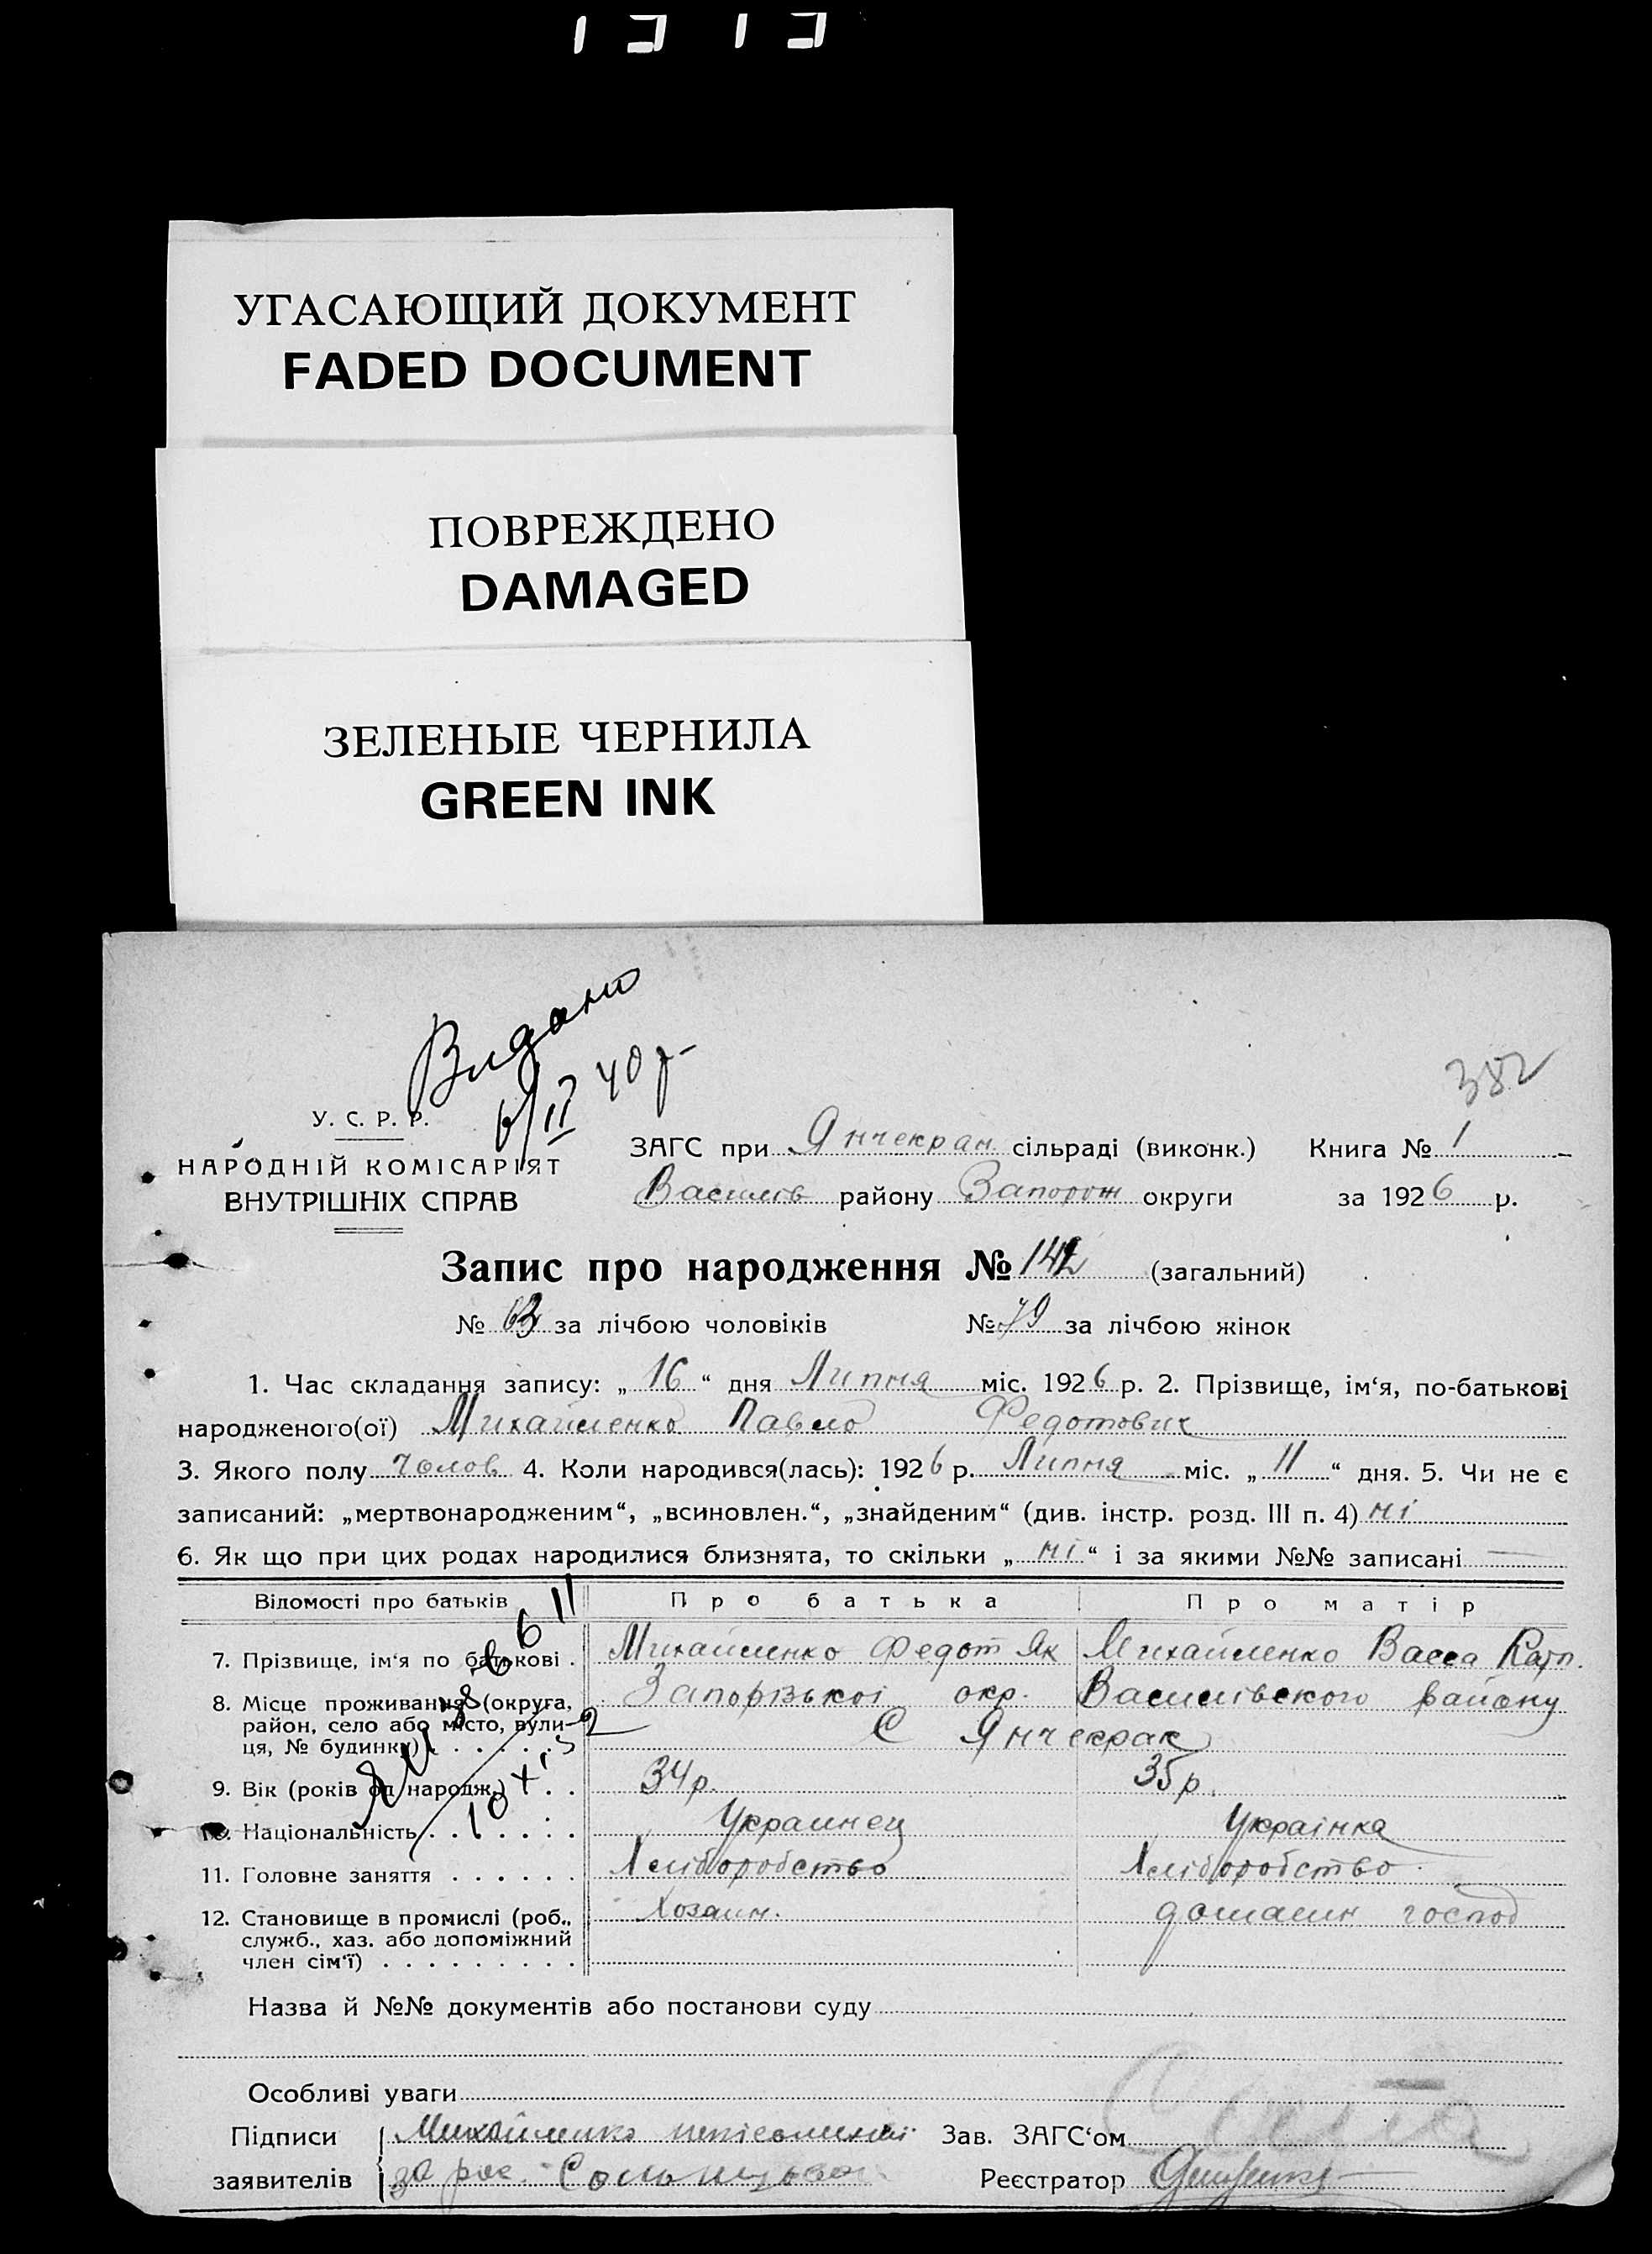 УГАСАЮЩИЙ ДОКУМЕНТ
FADED DOCUMENT
ПОВРЕЖДЕНО
DAMAGED
ЗЕЛЕНЫЕ ЧЕРНИЛА
GREEN INK
Видано
6/II 40 р
382
У. С. Р. Р.
НАРОДНІЙ КОМІСАРІЯТ
ВНУТРІШНІХ СПРАВ
ЗАГС при Янчекрак. сільраді (виконк.) Книга № 1
Василів району Запорож округи за 1926 р.
Запис про народження № 142 (загальний)
№ 63 за лічбою чоловіків № 79 за лічбою жінок
1. Час складання запису: „ 16 “ дня Липня міс. 1926 р. 2. Прізвище, ім‘я, по-батькові
народженого(ої) Михайленко Павло Федотович
3. Якого полу чолов 4. Коли народився(лась): 1926 р. Липня міс. „ 11 “ дня. 5. Чи не є
записаний: „мертвонародженим“, „всиновлен.“, „знайденим“ (див. інстр. розд. III п. 4) ні
6. Як що при цих родах народилися близнята, то скільки „ ні “ і за якими №№ записані —
Відомості про батьків Про батька Про матір
7. Прізвище, ім‘я по батькові . Михайленко Федот Як Михайленко Васса Карп.
8. Місце проживання (округа, Запорізької окр. Василівского району
район, село або місто, вули-
ця, № будинку) С Янчекрак
9. Вік (років од народж.) . . 34 р. 35 р.
10. Національність Украинец Українка
11. Головне заняття . . . . . . Хліборобство Хліборобство
12. Становище в промислі (роб., Хозаин. домашн господ
служб., хаз. або допоміжний
член сім‘ї) . . . . . . . . .
Назва й №№ документів або постанови суду
Особливі уваги
Підписи Михайленко неписьменній Зав. ЗАГС‘ом
заявителів за рос. Реєстратор